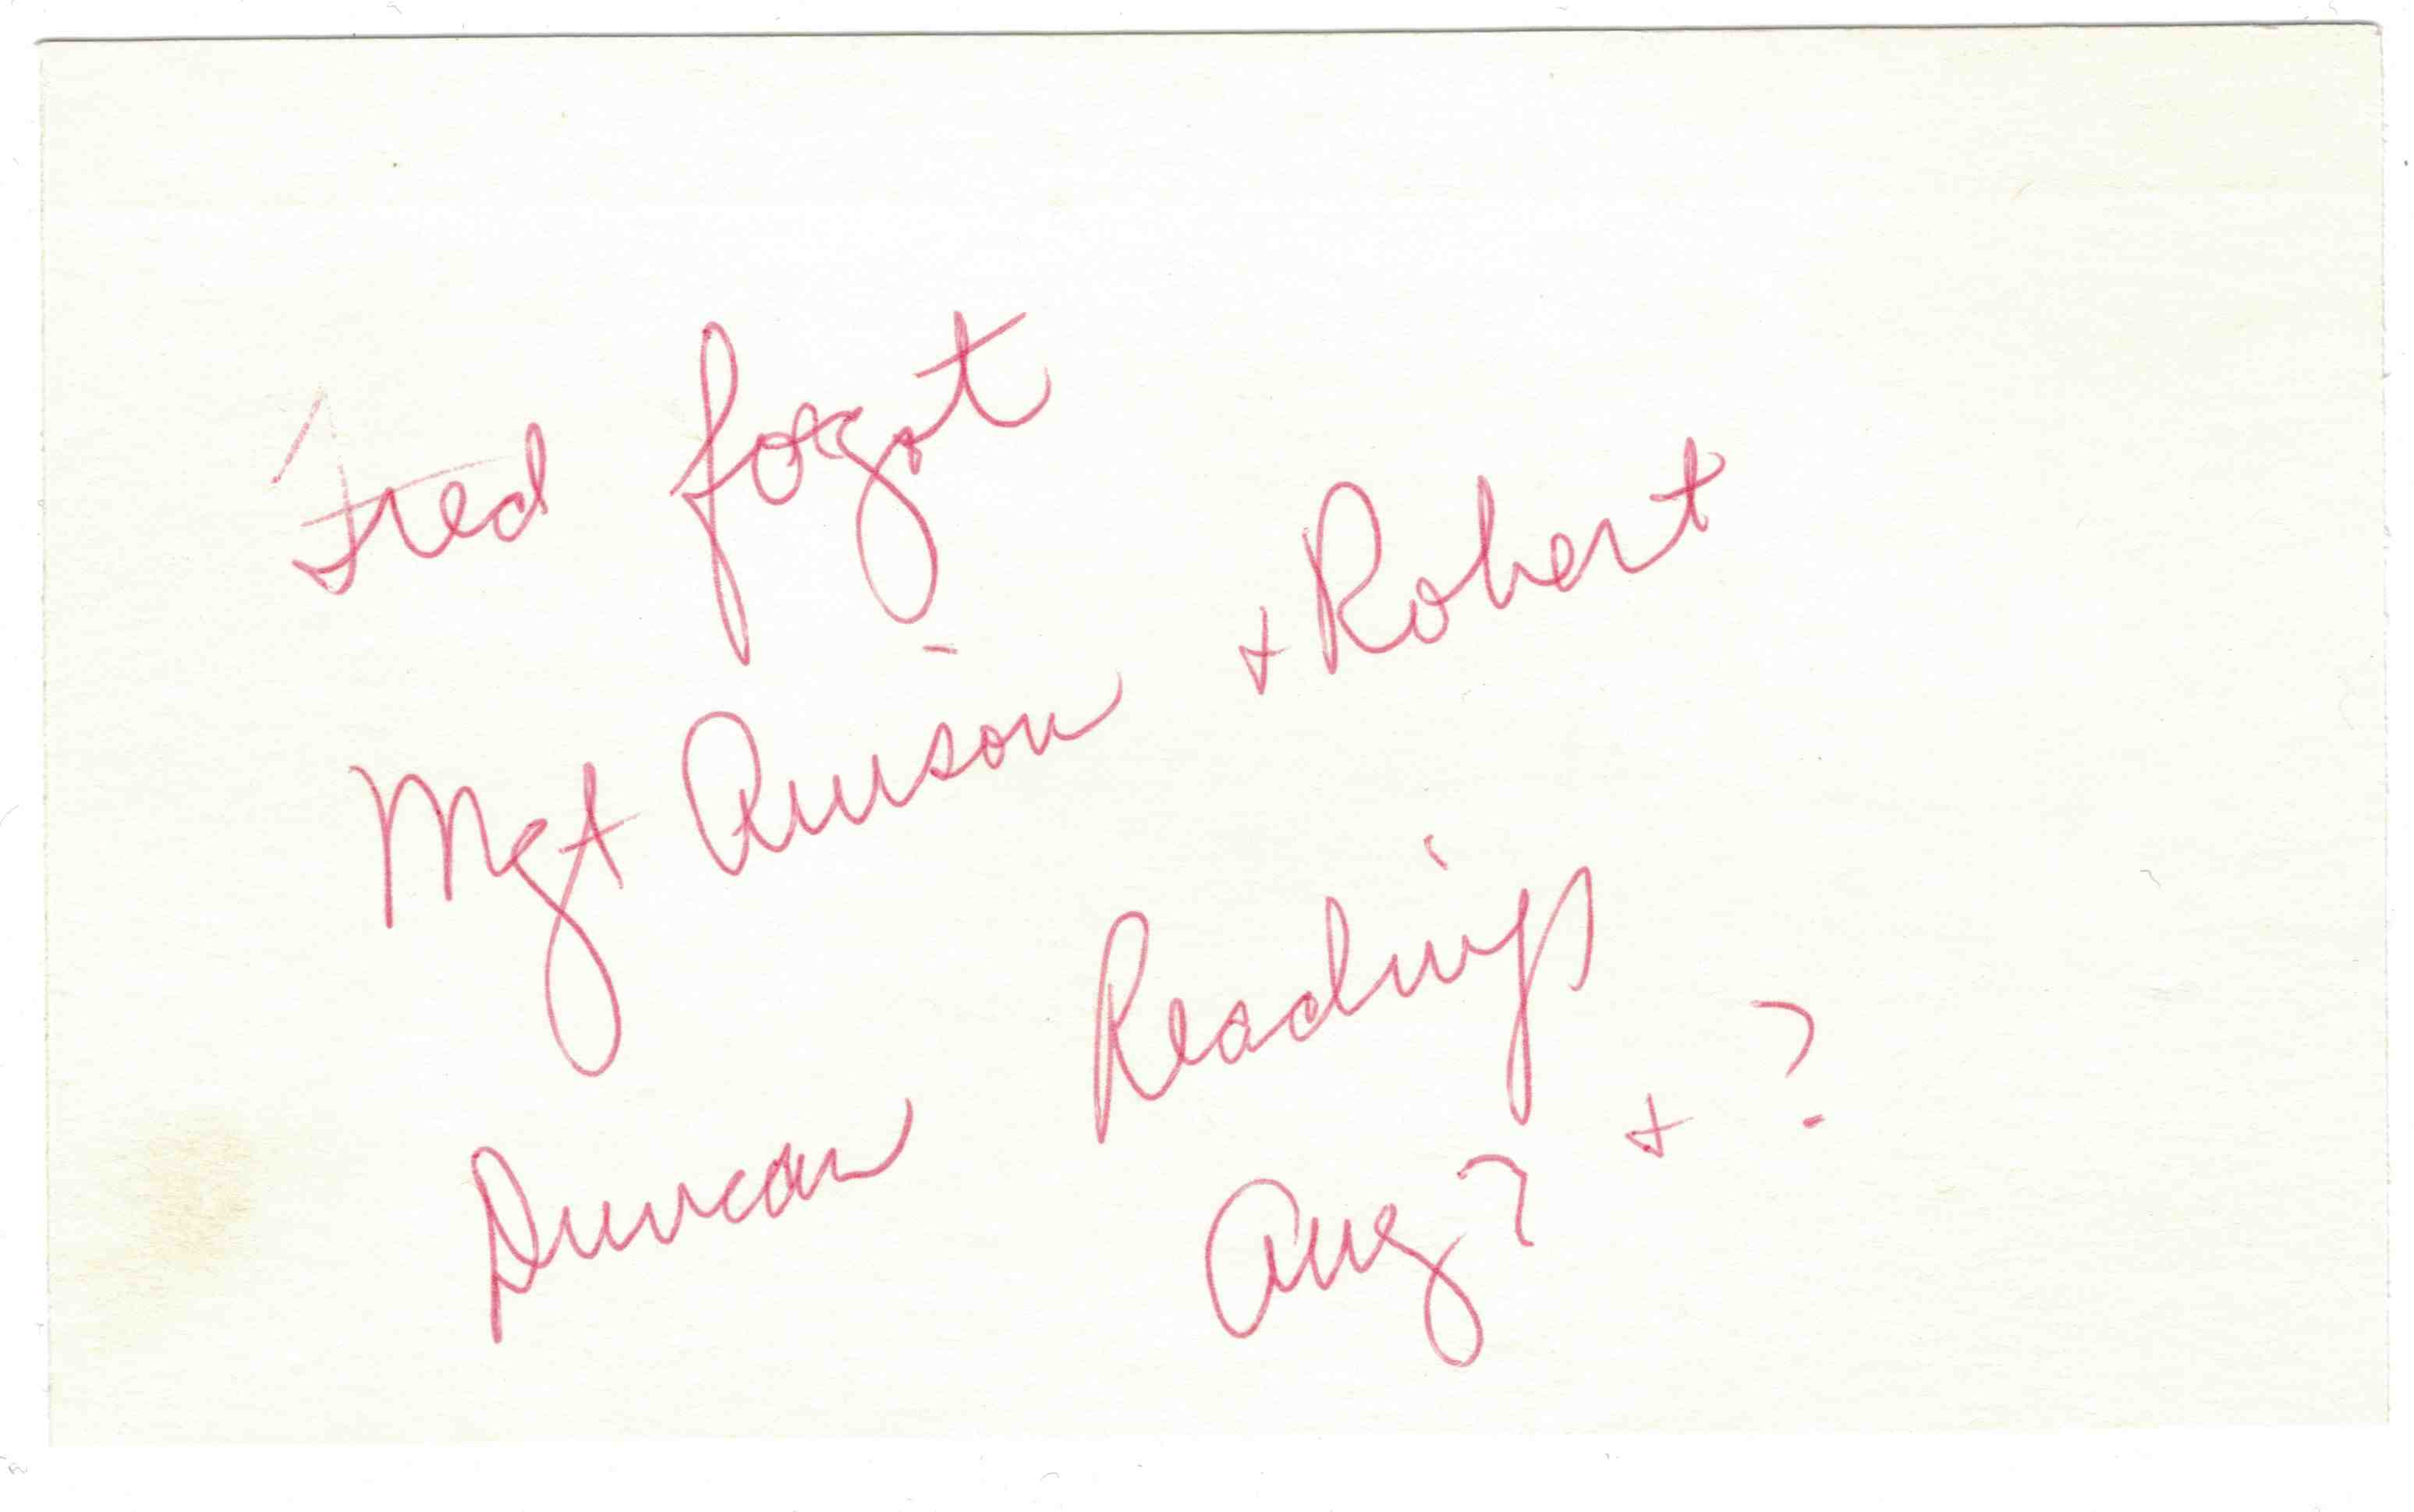 Fred forgot
Mgt Avison + Robert
Duncan Readings
Aug 7 + ?